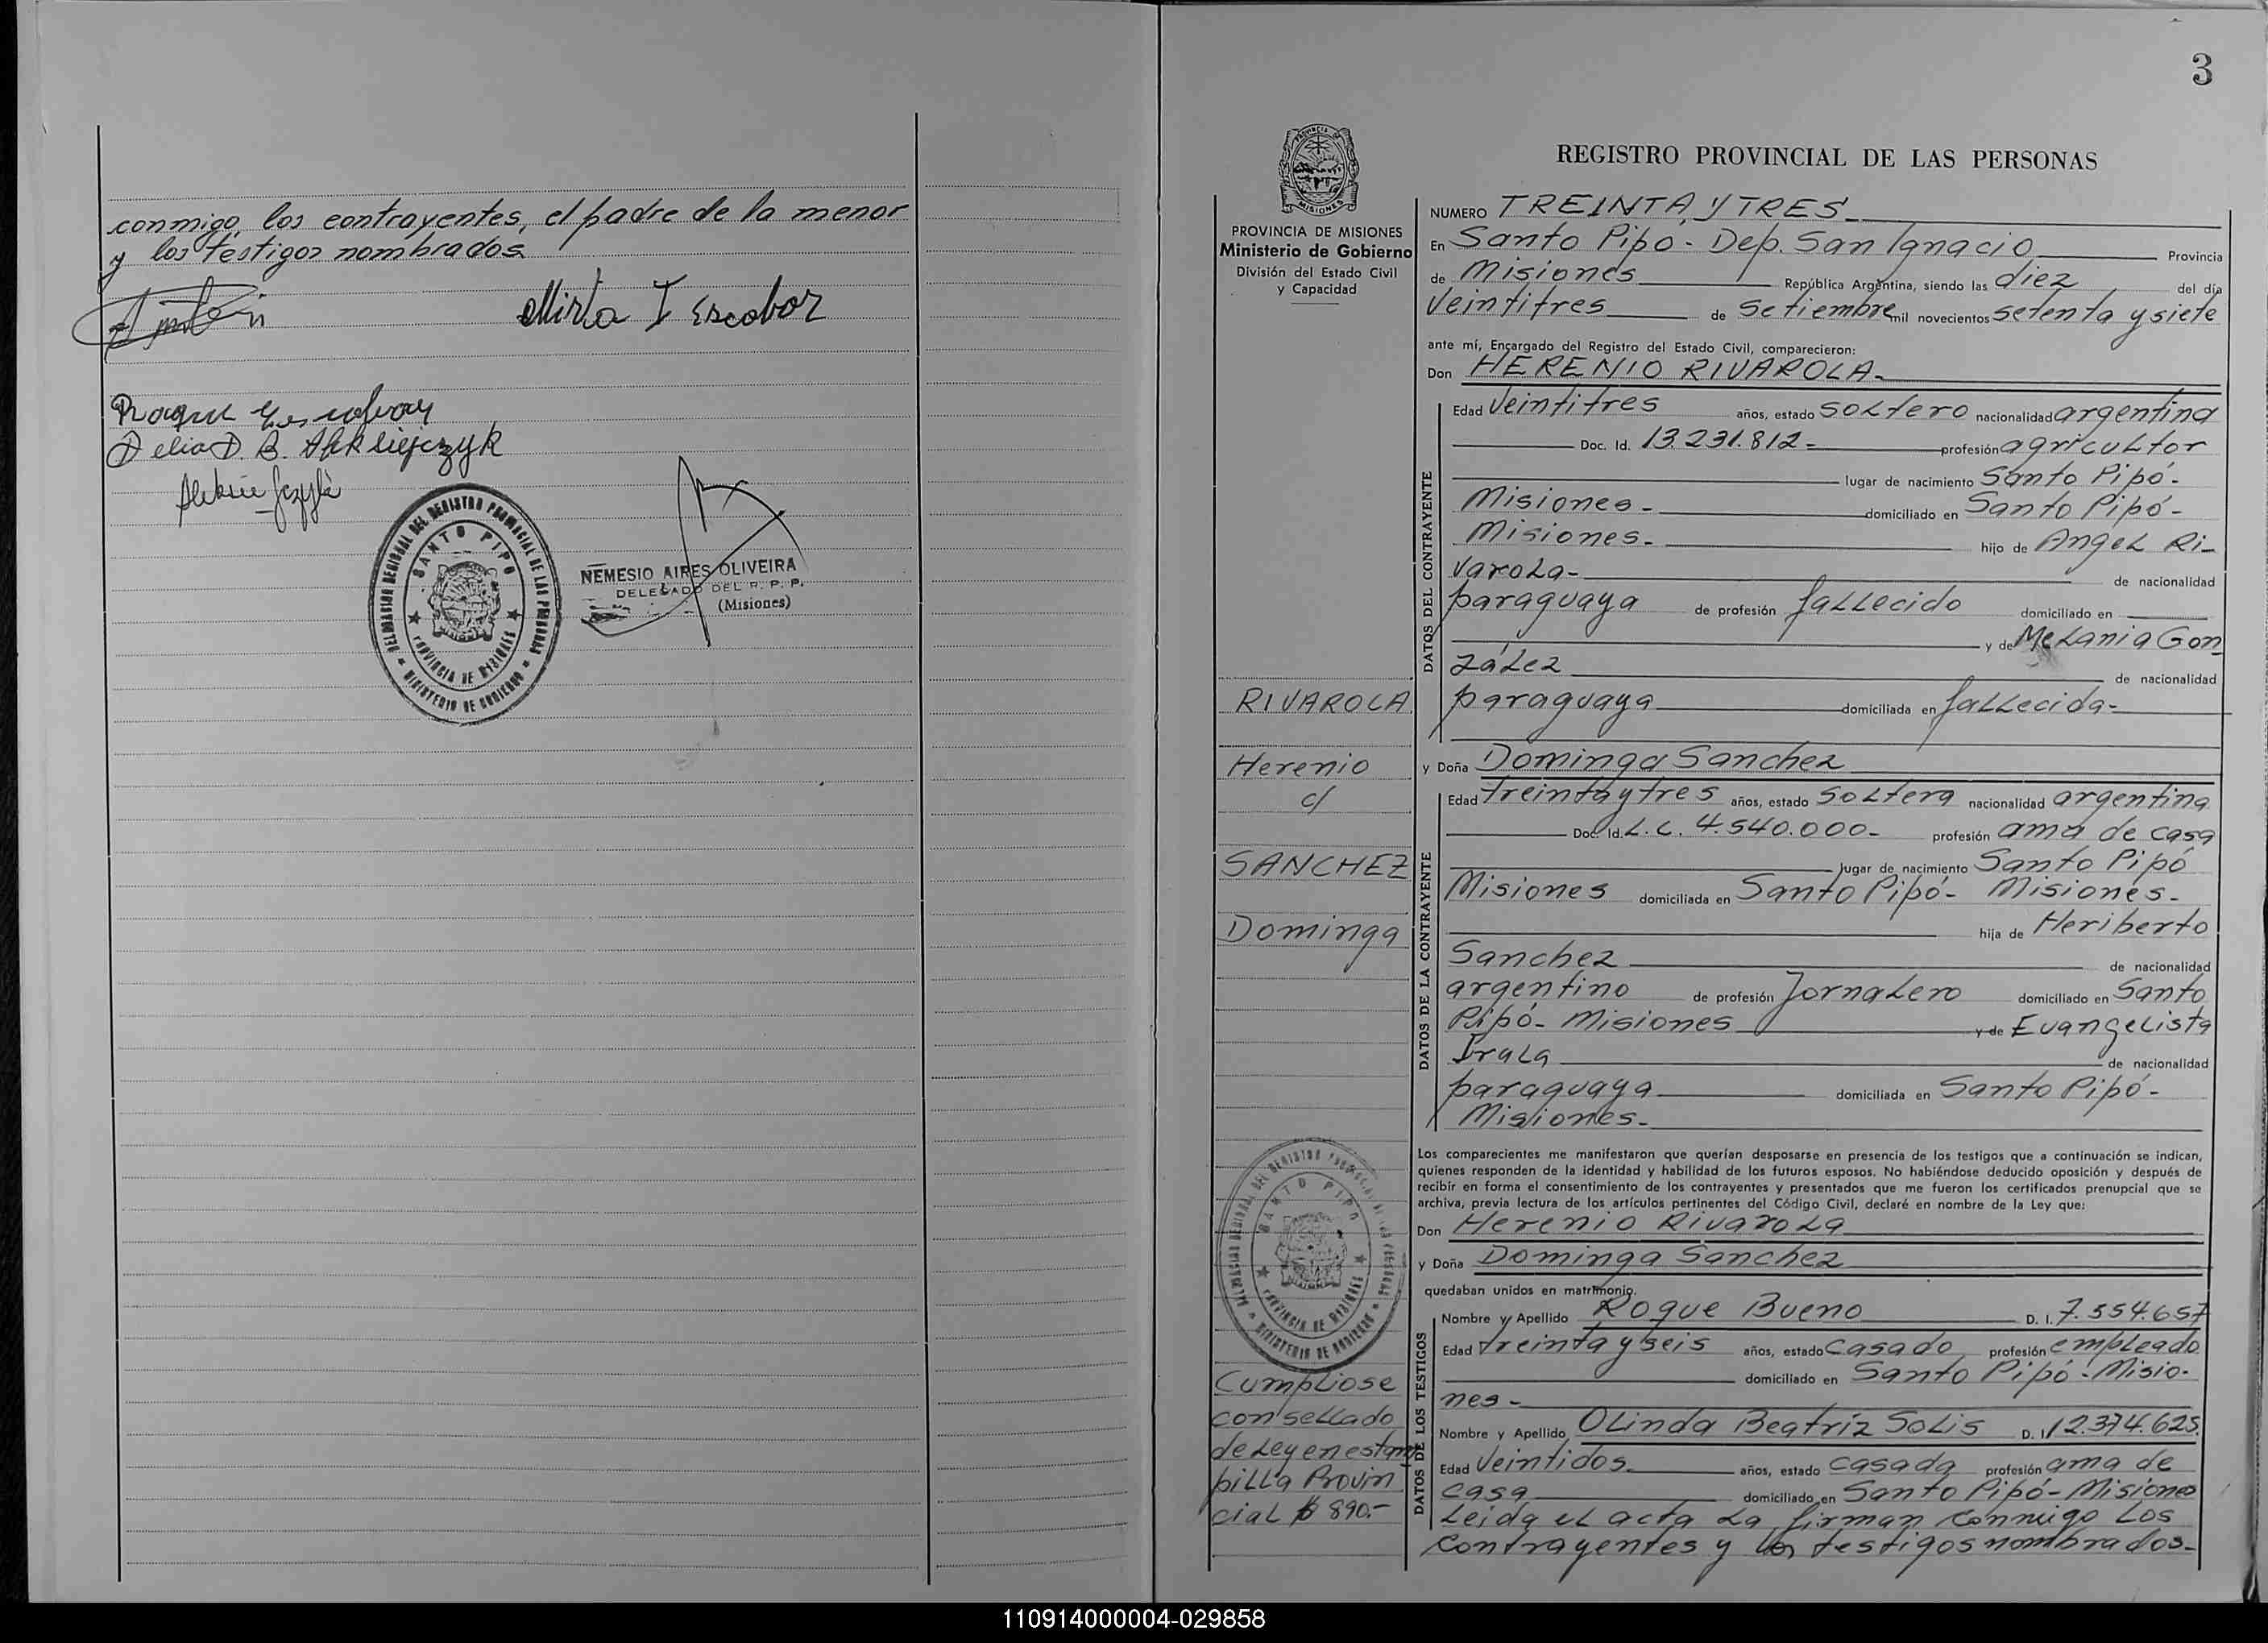 conmigo, los contrayentes, el padre de la menor
y los testigos nombrados
Mirta I Escobar
Roque
Delia D. B.
DELEGACION REGIONAL DEL REGISTRO PROVINCIAL DE LAS PERSONAS
SANTO PIPO
PROVINCIA DE MISIONES
MINISTERIO DE GOBIERNO
NEMESIO AIRES OLIVEIRA
DELEGADO DEL R. P. P.
(Misiones)
3
REGISTRO PROVINCIAL DE LAS PERSONAS
PROVINCIA DE MISIONES
Ministerio de Gobierno
División del Estado Civil
y Capacidad
RIVAROLA
Herenio
c/
SANCHEZ
Dominga
DELEGACION REGIONAL DEL REGISTRO PROVINCIAL DE LAS PERSONAS
SANTO PIPO
PROVINCIA DE MISIONES
MINISTERIO DE GOBIERNO
Cumpliose
con sellado
de Ley en estam
pilla Provin
cial $ 890.-
NUMERO TREINTA Y TRES
En Santo Pipó - Dep. San Ignacio Provincia
de Misiones República Argentina, siendo las diez del día
Veintitres de Setiembre mil novecientos setenta y siete
ante mí, Encargado del Registro del Estado Civil, comparecieron:
Don HERENIO RIVAROLA-
DATOS DEL CONTRAYENTE
Edad Veintitres años, estado soltero nacionalidad argentina
Doc. Id. 13.231.812- profesión agricultor
lugar de nacimiento Santo Pipó-
Misiones- domiciliado en Santo Pipó-
Misiones- hijo de Angel Ri-
varola- de nacionalidad
paraguaya de profesión fallecido domiciliado en
y de Melania Gon
zález de nacionalidad
paraguaya domiciliada en fallecida-
y Doña Dominga Sanchez
DATOS DE LA CONTRAYENTE
Edad treinta y tres años, estado soltera nacionalidad argentina
Doc. Id. L.C. 4.540.000- profesión ama de casa
lugar de nacimiento Santo Pipó
Misiones domiciliada en Santo Pipó- Misiones-
hija de Heriberto
Sanchez de nacionalidad
argentino de profesión Jornalero domiciliado en Santo
Pipó- Misiones y de Evangelista
Irala de nacionalidad
paraguaya domiciliada en Santo Pipó-
Misiones-
Los comparecientes me manifestaron que querían desposarse en presencia de los testigos que a continuación se indican,
quienes responden de la identidad y habilidad de los futuros esposos. No habiéndose deducido oposición y después de
recibir en forma el consentimiento de los contrayentes y presentados que me fueron los certificados prenupcial que se
archiva, previa lectura de los artículos pertinentes del Código Civil, declaré en nombre de la Ley que:
Don Herenio Rivarola
y Doña Dominga Sanchez
quedaban unidos en matrimonio.
DATOS DE LOS TESTIGOS
Nombre y Apellido Roque Bueno D. I. 7.554.657
Edad treinta y seis años, estado casado profesión empleado
domiciliado en Santo Pipó-Misio-
nes-
Nombre y Apellido Olinda Beatríz Solis D. I. 12.374.625
Edad Veintidos años, estado casada profesión ama de
casa domiciliado en Santo Pipó-Misiones
Leida el acta la firman conmigo los
contrayentes y los testigos nombrados-
110914000004-029858